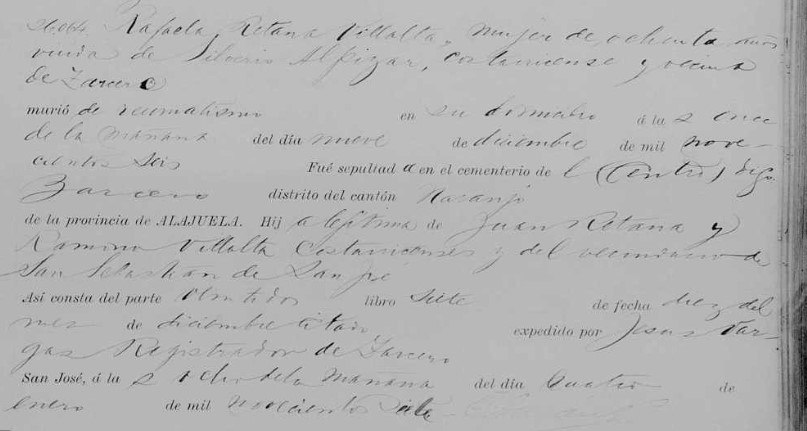 26,064. Rafaela Retana Villalta, mujer de ochenta años
viuda de Silverio Alpizar, costarricense y vecina
de Zarcero
murió de reumatismo en su domicilio á la s once
de la mañana del día nueve de diciembre de mil nove-
cientos seis Fué sepultad a en el cementerio de l (Centro) digo
Zarcero distrito del cantón Naranjo
de la provincia de ALAJUELA. Hij a legítima de Juan Retana y
Ramona Villalta Costarricenses y del vecindario de
San Sebastián de San José
Así consta del parte libro siete de fecha diez del
mes de diciembre citado expedido por Jesus Var-
gas Registrador de Zarcero
San José, á la s ocho de la mañana del día cuatro de
enero de mil novecientos siete